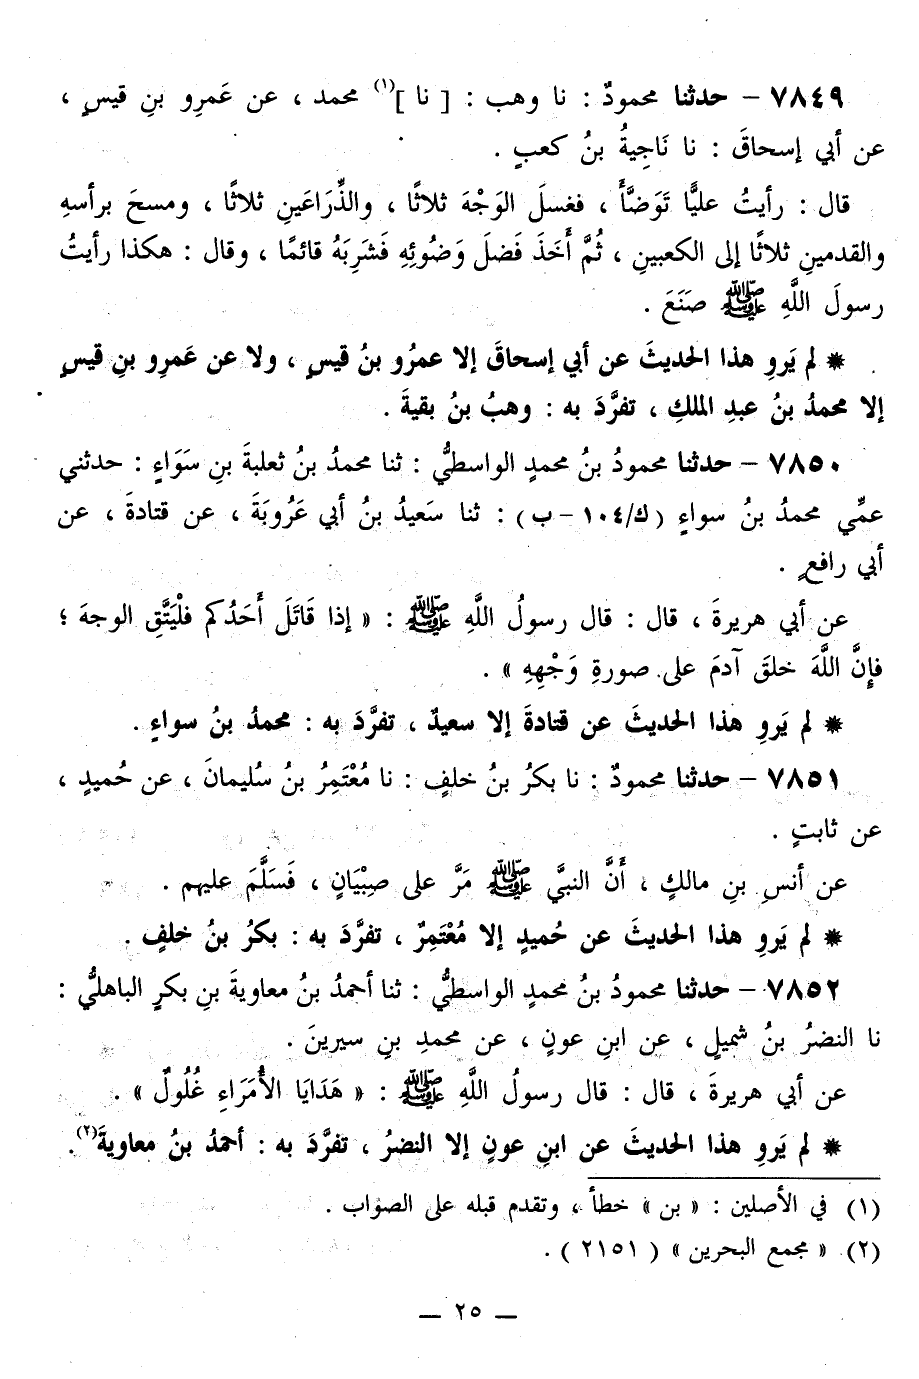 ٧٨٤٩ – حدثنا محمودٌ : نا وهب : [ نا ](١) محمد ، عن عَمرِو بنِ قيسٍ ،
عن أبي إسحاقَ : نا نَاجِيةُ بنُ كعبٍ .
قال : رأيتُ عليًّا تَوَضَّأَ ، فغسلَ الوَجْهَ ثلاثًا ، والذِّرَاعَينِ ثلاثًا ، ومسحَ برأسهِ
والقدمينِ ثلاثًا إلى الكعبينِ ، ثُمَّ أَخَذَ فَضلَ وَضُوئِهِ فَشَرِبَهُ قائمًا ، وقال : هكذا رأيتُ
رسولَ اللَّهِ ﷺ صَنَعَ .
* لم يَروِ هذا الحديثَ عن أبي إسحاقَ إلا عمرُو بنُ قيسٍ ، ولا عن عَمرِو بنِ قيسٍ
إلا محمدُ بنُ عبدِ الملكِ ، تفرَّدَ به : وهبُ بنُ بقيةَ .
٧٨٥٠ – حدثنا محمودُ بنُ محمدٍ الواسطيُّ : ثنا محمدُ بنُ ثعلبةَ بنِ سَوَاءٍ : حدثني
عمِّي محمدُ بنُ سواءٍ (ك/١٠٤ – ب) : ثنا سَعيدُ بنُ أبي عَرُوبَةَ ، عن قتادةَ ، عن
أبي رافعٍ .
عن أبي هريرةَ ، قال : قال رسولُ اللَّهِ ﷺ : « إذا قَاتَلَ أَحَدُكم فلْيَتَّقِ الوجهَ ؛
فإِنَّ اللَّهَ خلقَ آدمَ على صورةِ وَجْهِهِ » .
* لم يَروِ هذا الحديثَ عن قتادةَ إلا سعيدٌ ، تفرَّدَ به : محمدُ بنُ سواءٍ .
٧٨٥١ – حدثنا محمودٌ : نا بكرُ بنُ خلفٍ : نا مُعْتَمِرُ بنُ سُليمانَ ، عن حُميدٍ ،
عن ثابتٍ .
عن أنسِ بنِ مالكٍ ، أَنَّ النبيَّ ﷺ مَرَّ على صِبْيَانٍ ، فَسَلَّمَ عليهم .
* لم يَروِ هذا الحديثَ عن حُميدٍ إلا مُعْتَمِرٌ ، تفرَّدَ به : بكرُ بنُ خلفٍ .
٧٨٥٢ – حدثنا محمودُ بنُ محمدٍ الواسطيُّ : ثنا أحمدُ بنُ معاويةَ بنِ بكرٍ الباهليُّ :
نا النضرُ بنُ شميلٍ ، عن ابنِ عونٍ ، عن محمدِ بنِ سيرينَ .
عن أبي هريرةَ ، قال : قال رسولُ اللَّهِ ﷺ : « هَدَايَا الأُمَرَاءِ غُلُولٌ » .
* لم يَروِ هذا الحديثَ عن ابنِ عونٍ إلا النضرُ ، تفرَّدَ به : أحمدُ بنُ معاويةَ(٢) .
(١) في الأصلين : « بن » خطأ ، وتقدم قبله على الصواب .
(٢) « مجمع البحرين » ( ٢١٥١ ) .
– ٢٥ –